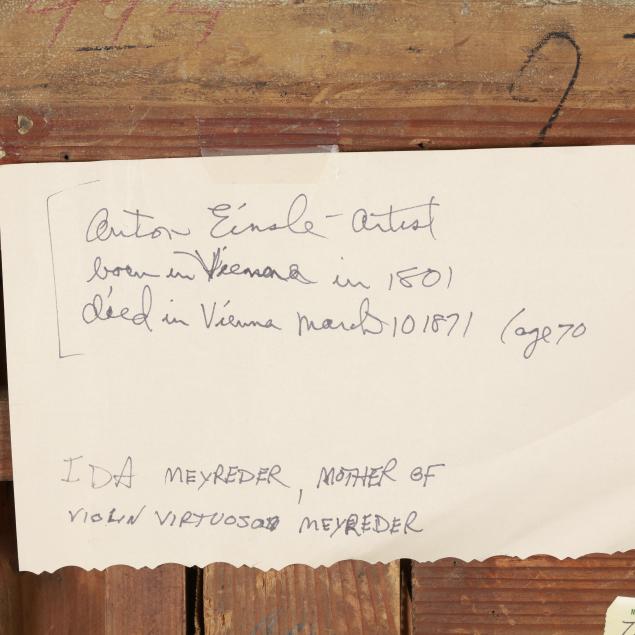 Anton Einsle - artist
born in Vienna in 1801
died in Vienna March 10 1871 (age 70
IDA MEYREDER, MOTHER OF
VIOLIN VIRTUOSO MEYREDER